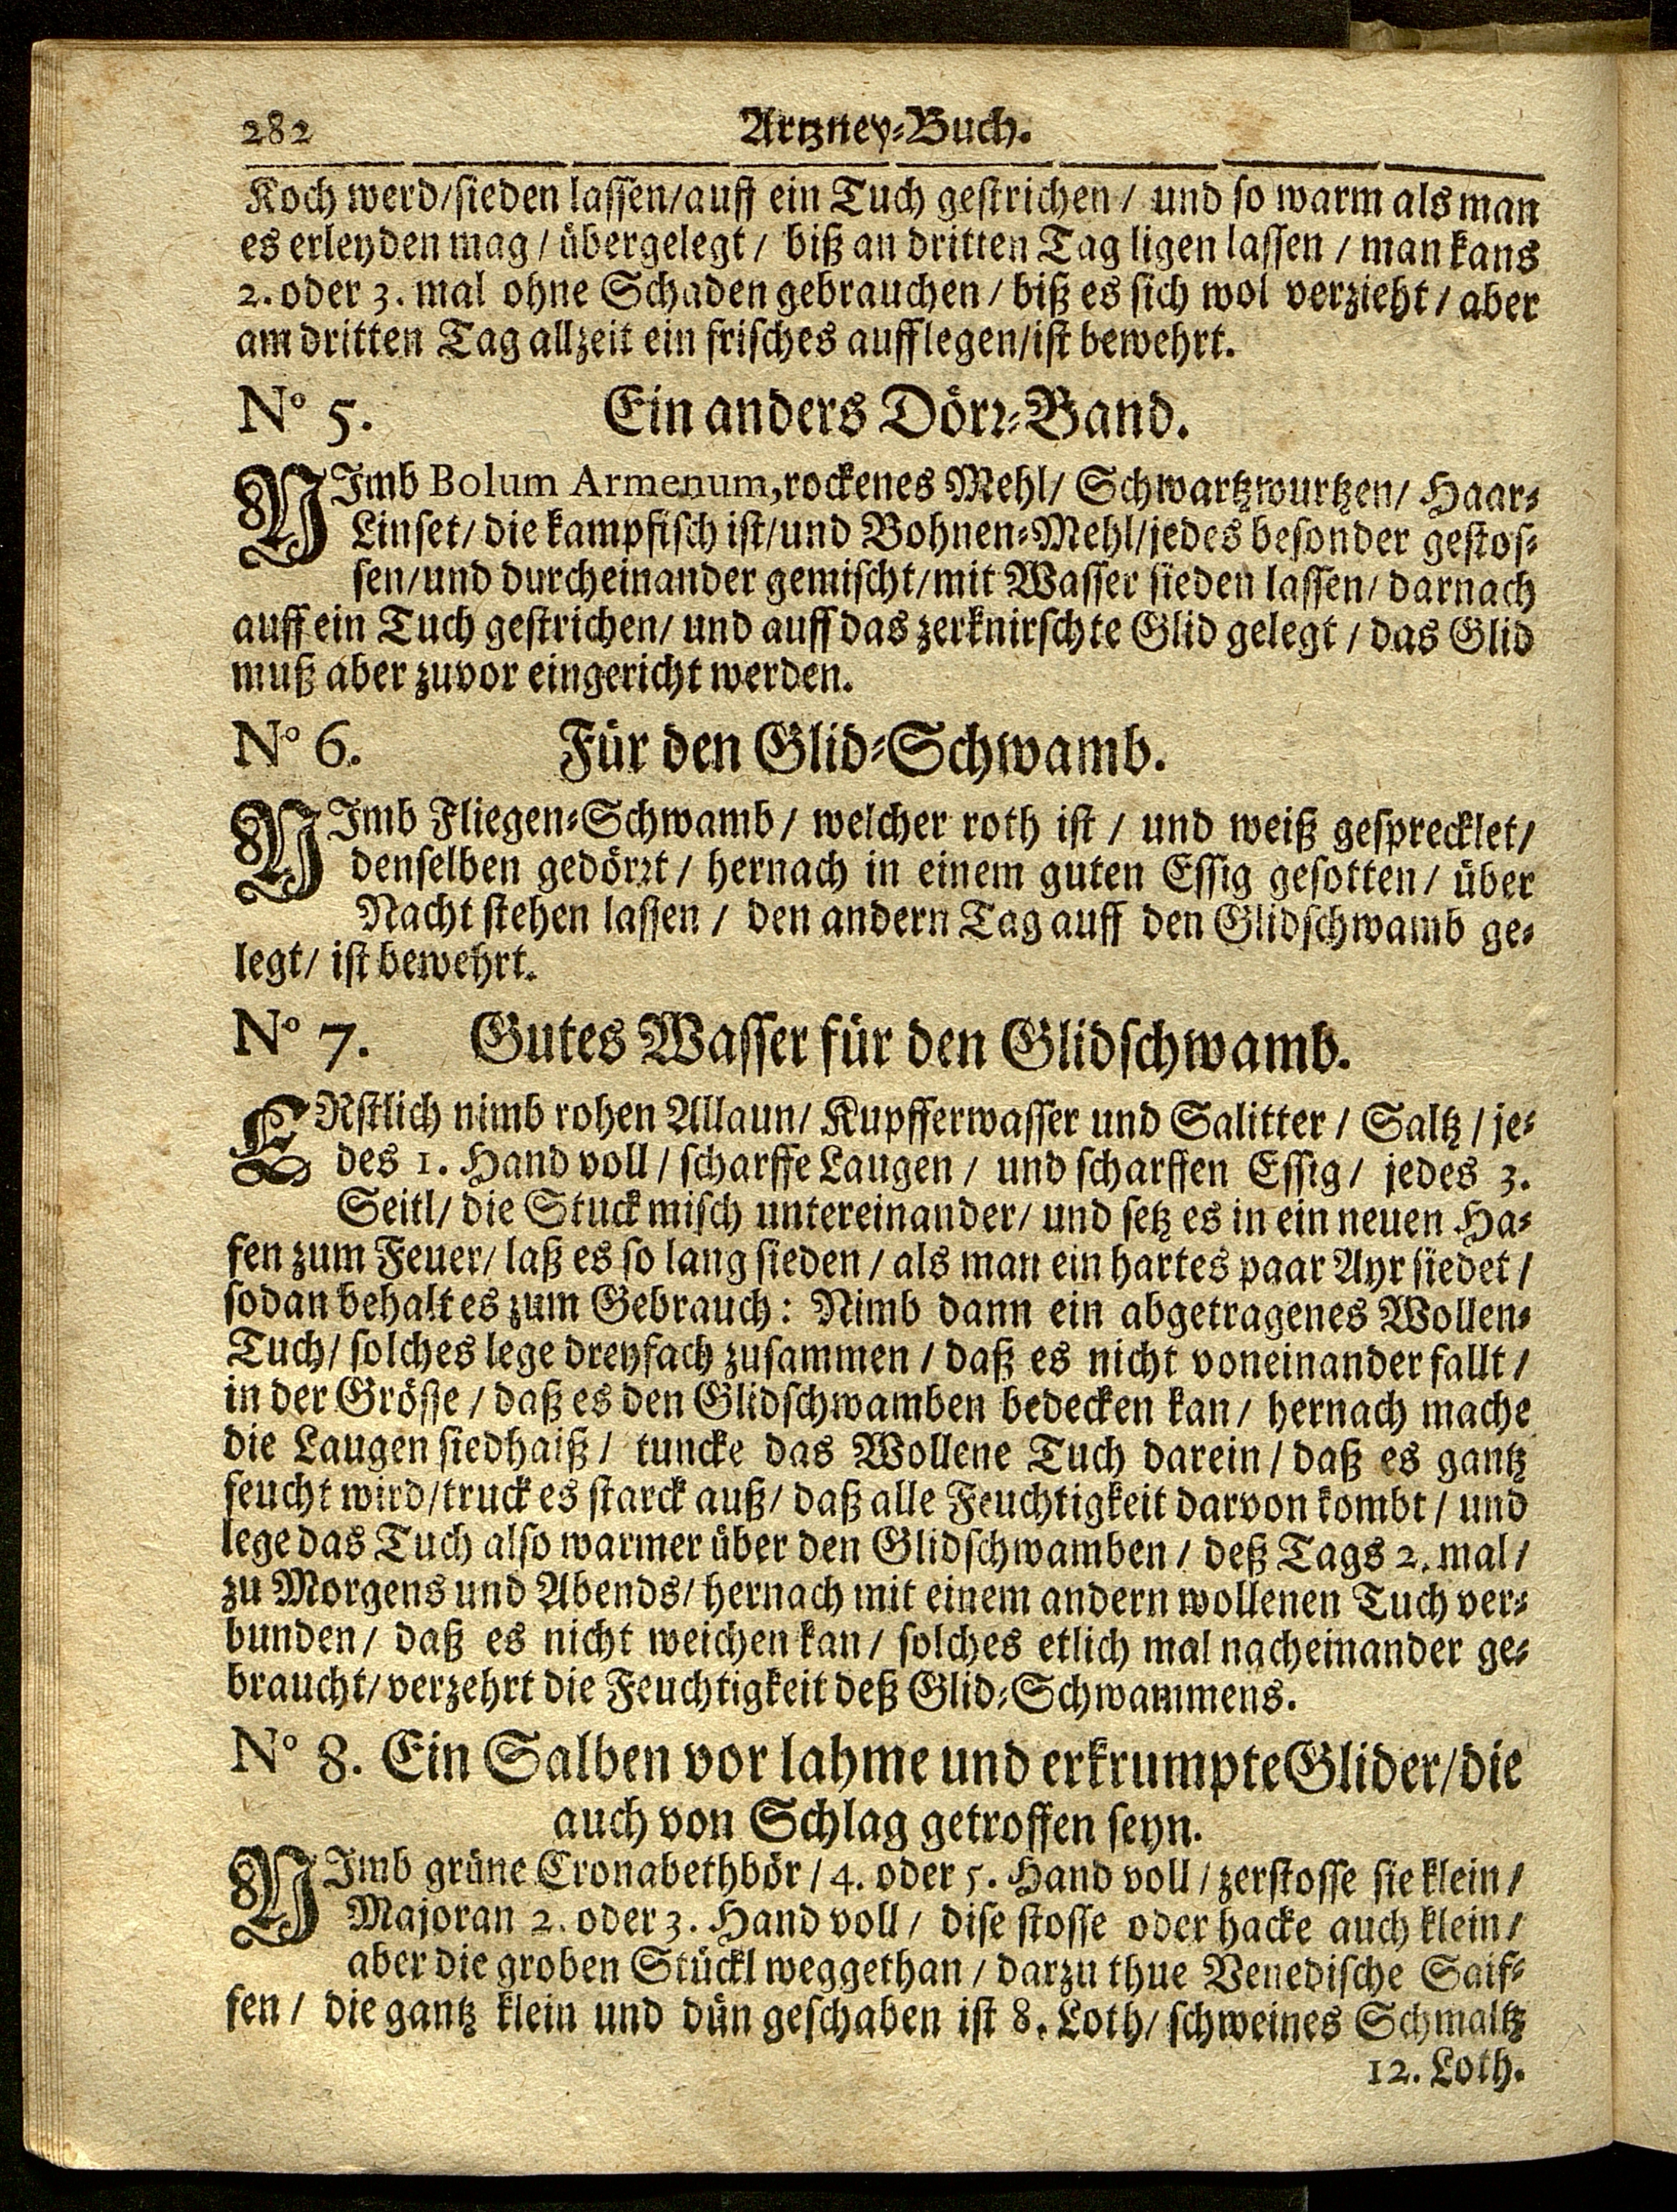 282 Artzney-Buch.
Koch werd/sieden lassen/auff ein Tuch gestrichen / und so warm als man
es erleyden mag / übergelegt / biß an dritten Tag ligen lassen / man kans
2. oder 3. mal ohne Schaden gebrauchen / biß es sich wol verzieht / aber
am dritten Tag allzeit ein frisches aufflegen/ist bewehrt.
No 5. Ein anders Dörr-Band.
NImb Bolum Armenum, rockenes Mehl/ Schwartzwurtzen/ Haar-
Linset/ die kampfisch ist/und Bohnen-Mehl/jedes besonder gestos-
sen/und durcheinander gemischt/mit Wasser sieden lassen/ darnach
auff ein Tuch gestrichen/ und auff das zerknirschte Glid gelegt / das Glid
muß aber zuvor eingericht werden.
No 6. Für den Glid-Schwamb.
NImb Fliegen-Schwamb / welcher roth ist / und weiß gesprecklet/
denselben gedörrt / hernach in einem guten Essig gesotten / über
Nacht stehen lassen / den andern Tag auff den Glidschwamb ge-
legt/ ist bewehrt.
No 7. Gutes Wasser für den Glidschwamb.
ERstlich nimb rohen Allaun/ Kupfferwasser und Salitter / Saltz / je-
des 1. Hand voll / scharffe Laugen / und scharffen Essig / jedes 3.
Seitl/ die Stuck misch untereinander/ und setz es in ein neuen Ha-
fen zum Feuer/ laß es so lang sieden / als man ein hartes paar Ayr siedet /
sodan behalt es zum Gebrauch: Nimb dann ein abgetragenes Wollen-
Tuch/ solches lege dreyfach zusammen / daß es nicht voneinander fallt /
in der Grösse / daß es den Glidschwamben bedecken kan / hernach mache
die Laugen siedhaiß / tuncke das Wollene Tuch darein / daß es gantz
feucht wird/truck es starck auß/ daß alle Feuchtigkeit darvon kombt / und
lege das Tuch also warmer über den Glidschwamben / deß Tags 2. mal /
zu Morgens und Abends/ hernach mit einem andern wollenen Tuch ver-
bunden / daß es nicht weichen kan / solches etlich mal nacheinander ge-
braucht/ verzehrt die Feuchtigkeit deß Glid-Schwammens.
No 8. Ein Salben vor lahme und erkrumpte Glider/die
auch von Schlag getroffen seyn.
NImb grüne Cronabethbör / 4. oder 5. Hand voll / zerstosse sie klein /
Majoran 2. oder 3. Hand voll / dise stosse oder hacke auch klein /
aber die groben Stückl weggethan / darzu thue Venedische Saif-
fen / die gantz klein und dün geschaben ist 8. Loth/ schweines Schmaltz
12. Loth.